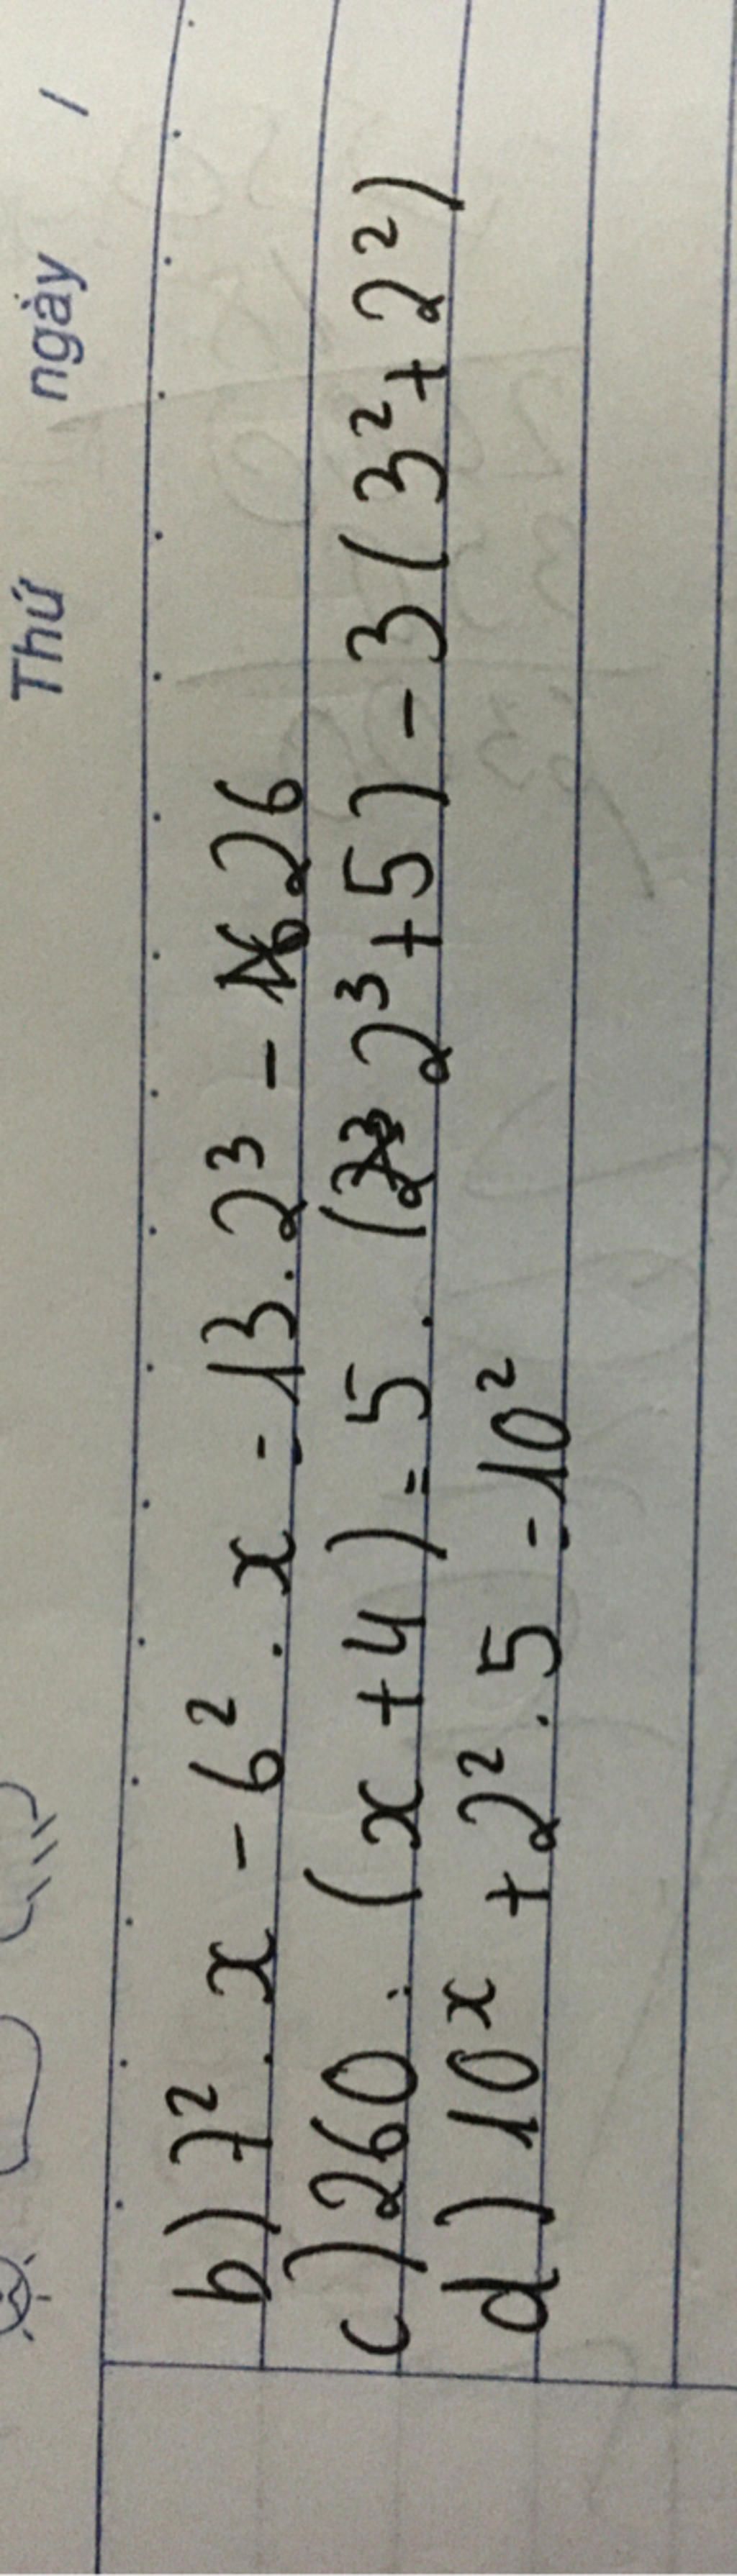 Thứ ngày /
b) 7². x - 6² . x = 13. 2³ - 26
c) 260 : (x + 4) = 5 . (2³ + 5) - 3 (3² + 2²)
d) 10ˣ + 2² . 5 = 10²